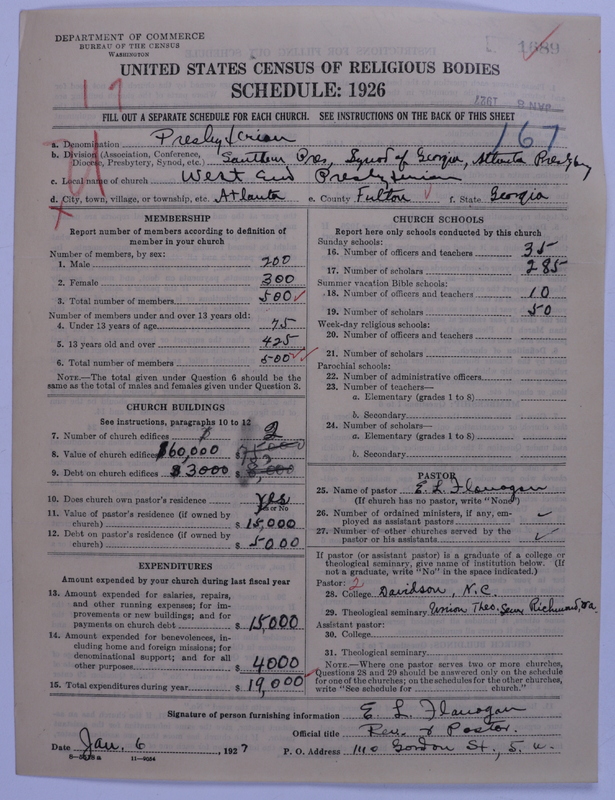 DEPARTMENT OF COMMERCE
BUREAU OF THE CENSUS
WASHINGTON
1689
UNITED STATES CENSUS OF RELIGIOUS BODIES
SCHEDULE: 1926
JAN 8 1927
FILL OUT A SEPARATE SCHEDULE FOR EACH CHURCH. SEE INSTRUCTIONS ON THE BACK OF THIS SHEET
17
167
a. Denomination Presbyterian
b. Division (Association, Conference, Diocese, Presbytery, Synod, etc.) Southern Pres, Synod of Georgia, Atlanta Presbytery
c. Local name of church West End Presbyterian
d. City, town, village, or township, etc. Atlanta e. County Fulton f. State Georgia
MEMBERSHIP
Report number of members according to definition of
member in your church
Number of members, by sex:
1. Male 200
2. Female 300
3. Total number of members 500
Number of members under and over 13 years old:
4. Under 13 years of age 75
5. 13 years old and over 425
6. Total number of members 500
NOTE.—The total given under Question 6 should be the
same as the total of males and females given under Question 3.
CHURCH BUILDINGS
See instructions, paragraphs 10 to 12
7. Number of church edifices 2
8. Value of church edifices $60,000
9. Debt on church edifices $3000
10. Does church own pastor's residence Yes
Yes or No
11. Value of pastor's residence (if owned by
church) $15,000
12. Debt on pastor's residence (if owned by
church) $5000
EXPENDITURES
Amount expended by your church during last fiscal year
13. Amount expended for salaries, repairs,
and other running expenses; for im-
provements or new buildings; and for
payments on church debt $15,000
14. Amount expended for benevolences, in-
cluding home and foreign missions; for
denominational support; and for all
other purposes $4000
15. Total expenditures during year $19,000
CHURCH SCHOOLS
Report here only schools conducted by this church
Sunday schools:
16. Number of officers and teachers 35
17. Number of scholars 285
Summer vacation Bible schools:
18. Number of officers and teachers 10
19. Number of scholars 50
Week-day religious schools:
20. Number of officers and teachers
21. Number of scholars
Parochial schools:
22. Number of administrative officers
23. Number of teachers—
a. Elementary (grades 1 to 8)
b. Secondary
24. Number of scholars—
a. Elementary (grades 1 to 8)
b. Secondary
PASTOR
25. Name of pastor E. L. Flanagan
(If church has no pastor, write "None")
26. Number of ordained ministers, if any, em-
ployed as assistant pastors
27. Number of other churches served by the
pastor or his assistants
If pastor (or assistant pastor) is a graduate of a college or
theological seminary, give name of institution below. (If
not a graduate, write "No" in the space indicated.)
Pastor: 2
28. College Davidson, N.C.
29. Theological seminary Union Theo. Sem Richmond, Va.
Assistant pastor:
30. College
31. Theological seminary
NOTE.—Where one pastor serves two or more churches,
Questions 28 and 29 should be answered only on the schedule
for one of the churches; on the schedules for the other churches,
write "See schedule for church."
Signature of person furnishing information E. L. Flanagan
Official title Rev. & Pastor.
Date Jan. 6, 1927 P. O. Address 1110 Gordon St., S. W.
11—9034